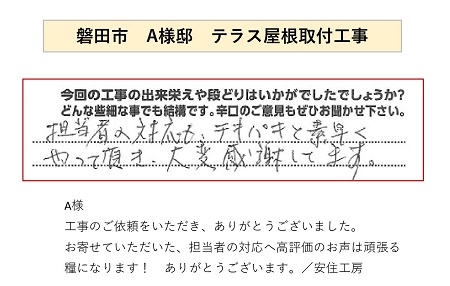 磐田市　A様邸　テラス屋根取付工事
今回の工事の出来栄えや段どりはいかがでしたでしょうか?
どんな些細な事でも結構です。辛口のご意見もぜひお聞かせ下さい。
担当者の対応も、テキパキと素早く
やって頂き、大変感謝してます。
A様
工事のご依頼をいただき、ありがとうございました。
お寄せていただいた、担当者の対応へ高評価のお声は頑張る
糧になります！　ありがとうございます。／安住工房